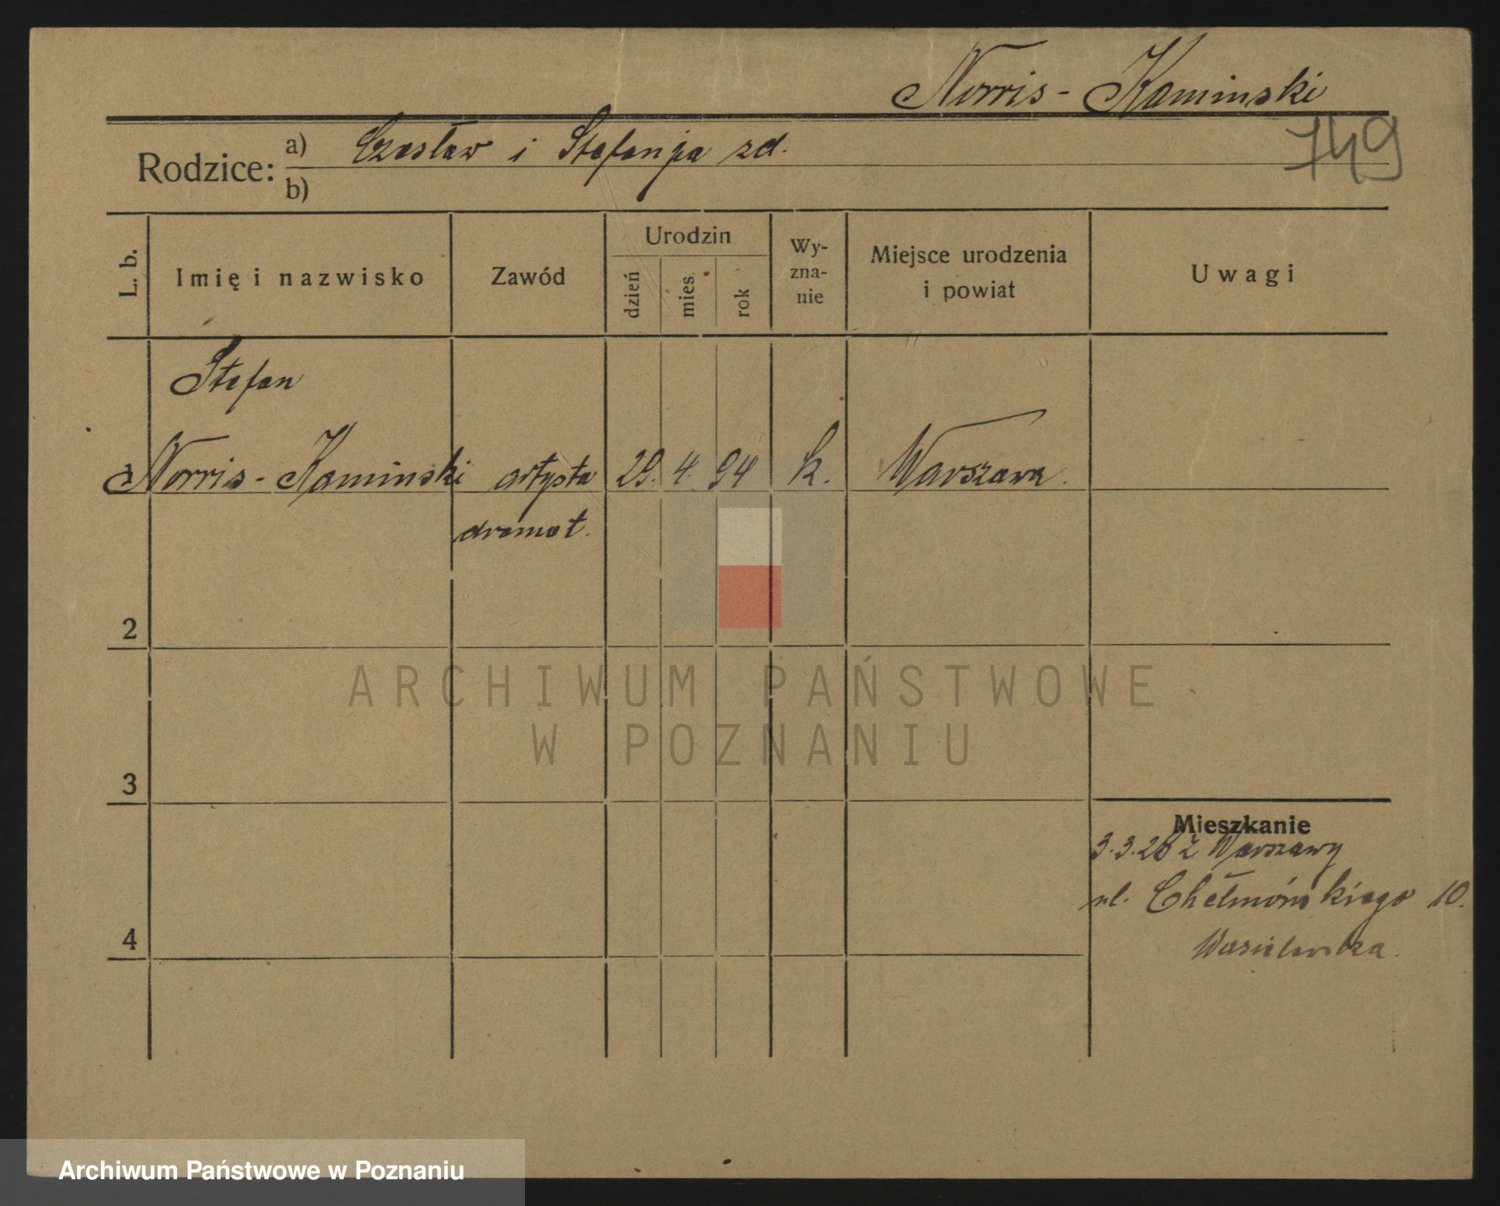 Norris-Kaminski
749
Rodzice: a) Czesław i Stefanja zd.
b)
L. b.
Imię i nazwisko
Zawód
Urodzin
dzień
mies
rok
Wy-
zna-
nie
Miejsce urodzenia
i powiat
Uwagi
Stefan
Norris-Kaminski artysta 29. 4. 94 k. Warszawa.
dramat.
2
3
4
Mieszkanie
3.3.26 z Warszawy
ul. Chełmońskiego 10.
Wasielewska.
ARCHIWUM PAŃSTWOWE
W POZNANIU
Archiwum Państwowe w Poznaniu